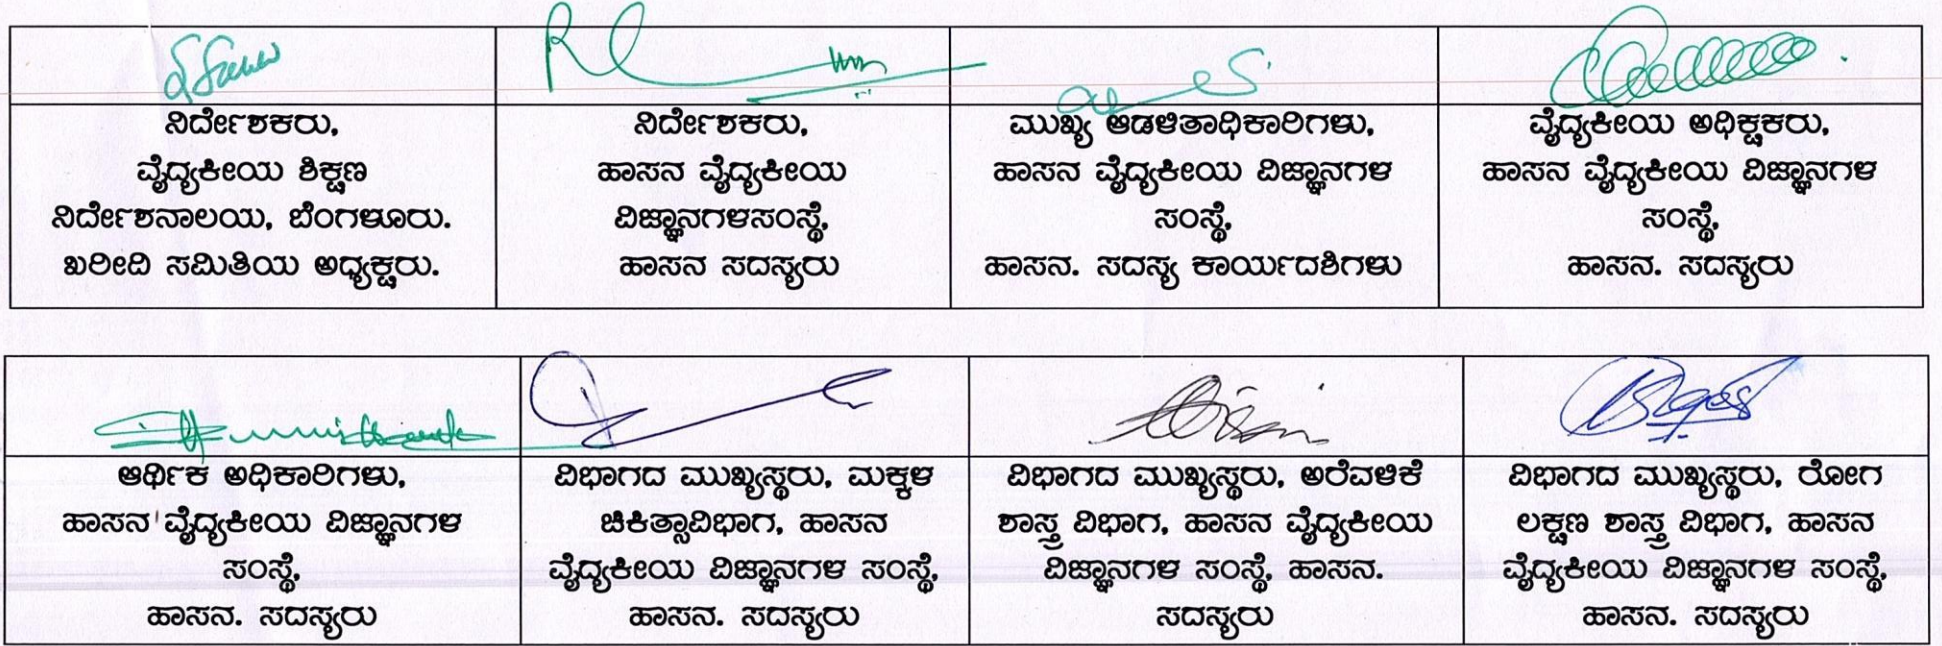 ನಿರ್ದೇಶಕರು,
ವೈದ್ಯಕೀಯ ಶಿಕ್ಷಣ
ನಿರ್ದೇಶನಾಲಯ, ಬೆಂಗಳೂರು.
ಖರೀದಿ ಸಮಿತಿಯ ಅಧ್ಯಕ್ಷರು.
ನಿರ್ದೇಶಕರು,
ಹಾಸನ ವೈದ್ಯಕೀಯ
ವಿಜ್ಞಾನಗಳಸಂಸ್ಥೆ,
ಹಾಸನ ಸದಸ್ಯರು
ಮುಖ್ಯ ಆಡಳಿತಾಧಿಕಾರಿಗಳು,
ಹಾಸನ ವೈದ್ಯಕೀಯ ವಿಜ್ಞಾನಗಳ
ಸಂಸ್ಥೆ,
ಹಾಸನ. ಸದಸ್ಯ ಕಾರ್ಯದಶಿಗಳು
ವೈದ್ಯಕೀಯ ಅಧಿಕ್ಷಕರು,
ಹಾಸನ ವೈದ್ಯಕೀಯ ವಿಜ್ಞಾನಗಳ
ಸಂಸ್ಥೆ,
ಹಾಸನ. ಸದಸ್ಯರು
ಆರ್ಥಿಕ ಅಧಿಕಾರಿಗಳು,
ಹಾಸನ ವೈದ್ಯಕೀಯ ವಿಜ್ಞಾನಗಳ
ಸಂಸ್ಥೆ,
ಹಾಸನ. ಸದಸ್ಯರು
ವಿಭಾಗದ ಮುಖ್ಯಸ್ಥರು, ಮಕ್ಕಳ
ಚಿಕಿತ್ಸಾವಿಭಾಗ, ಹಾಸನ
ವೈದ್ಯಕೀಯ ವಿಜ್ಞಾನಗಳ ಸಂಸ್ಥೆ,
ಹಾಸನ. ಸದಸ್ಯರು
ವಿಭಾಗದ ಮುಖ್ಯಸ್ಥರು, ಅರೆವಳಿಕೆ
ಶಾಸ್ತ್ರ ವಿಭಾಗ, ಹಾಸನ ವೈದ್ಯಕೀಯ
ವಿಜ್ಞಾನಗಳ ಸಂಸ್ಥೆ, ಹಾಸನ.
ಸದಸ್ಯರು
ವಿಭಾಗದ ಮುಖ್ಯಸ್ಥರು, ರೋಗ
ಲಕ್ಷಣ ಶಾಸ್ತ್ರ ವಿಭಾಗ, ಹಾಸನ
ವೈದ್ಯಕೀಯ ವಿಜ್ಞಾನಗಳ ಸಂಸ್ಥೆ,
ಹಾಸನ. ಸದಸ್ಯರು